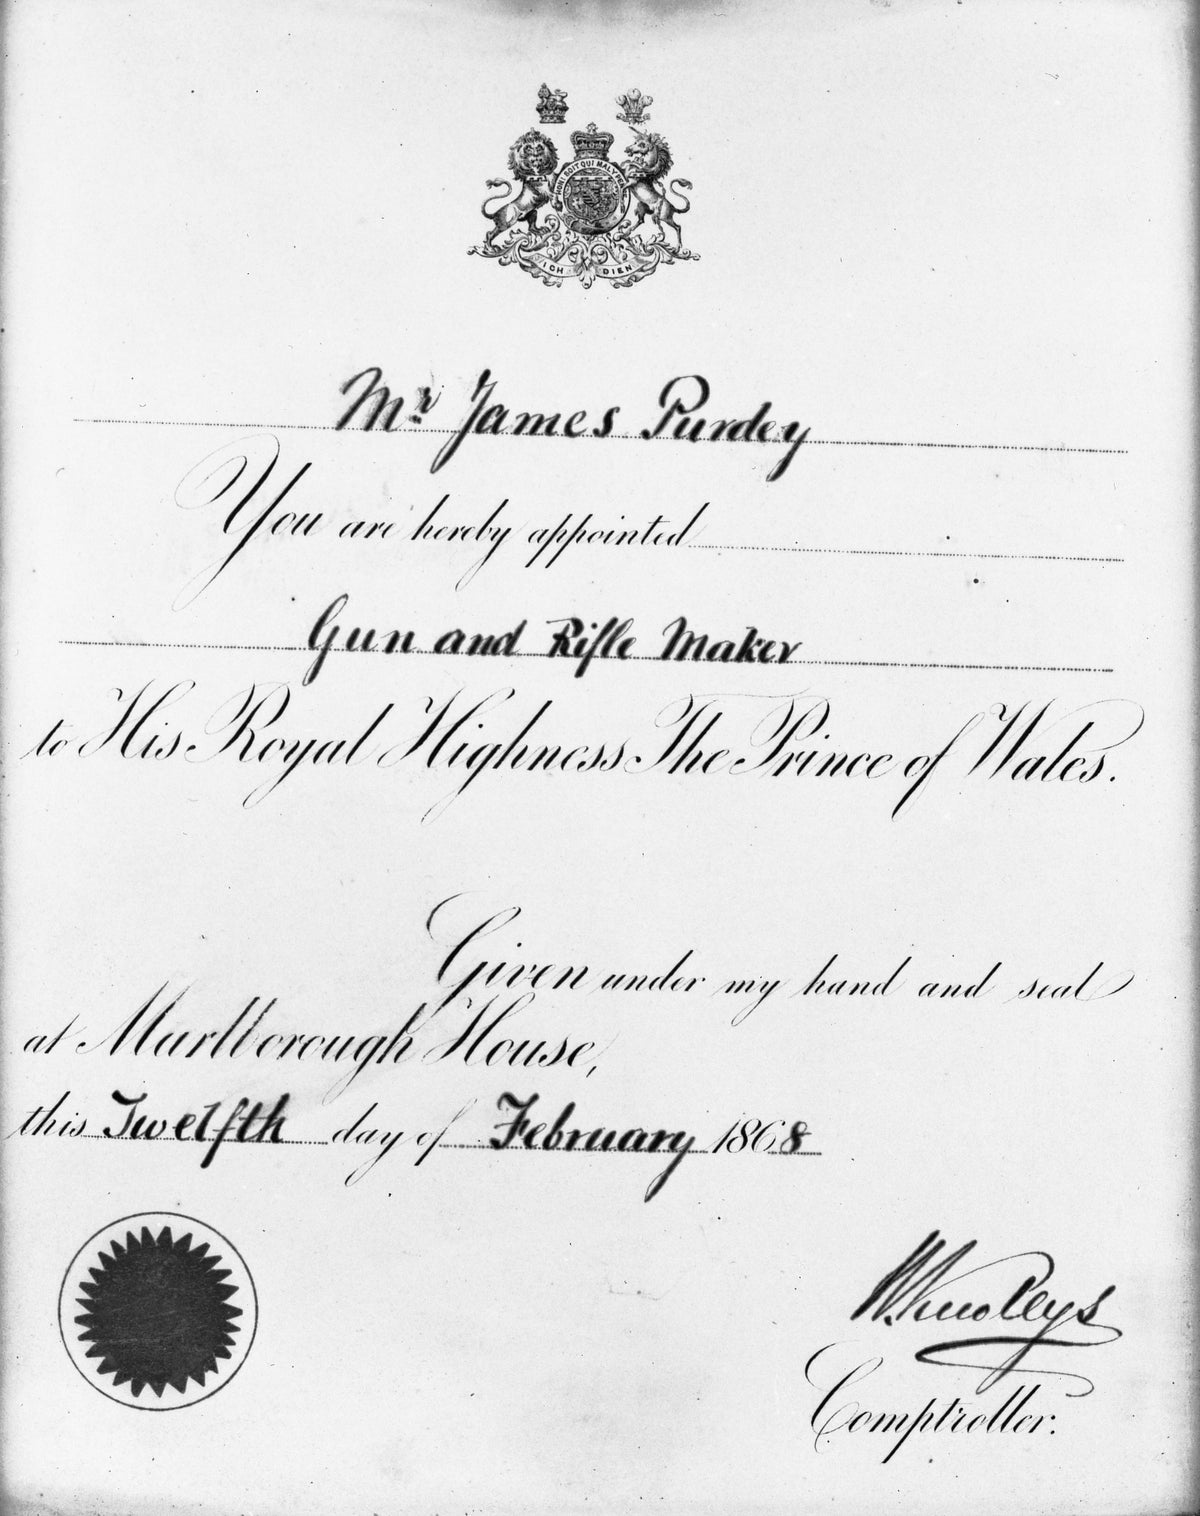 HONI SOIT QUI MAL Y PENSE
ICH DIEN
Mr James Purdey
You are hereby appointed
Gun and Rifle Maker
to His Royal Highness The Prince of Wales.
Given under my hand and seal
at Marlborough House,
this Twelfth day of February 1868
W. Knollys
Comptroller.